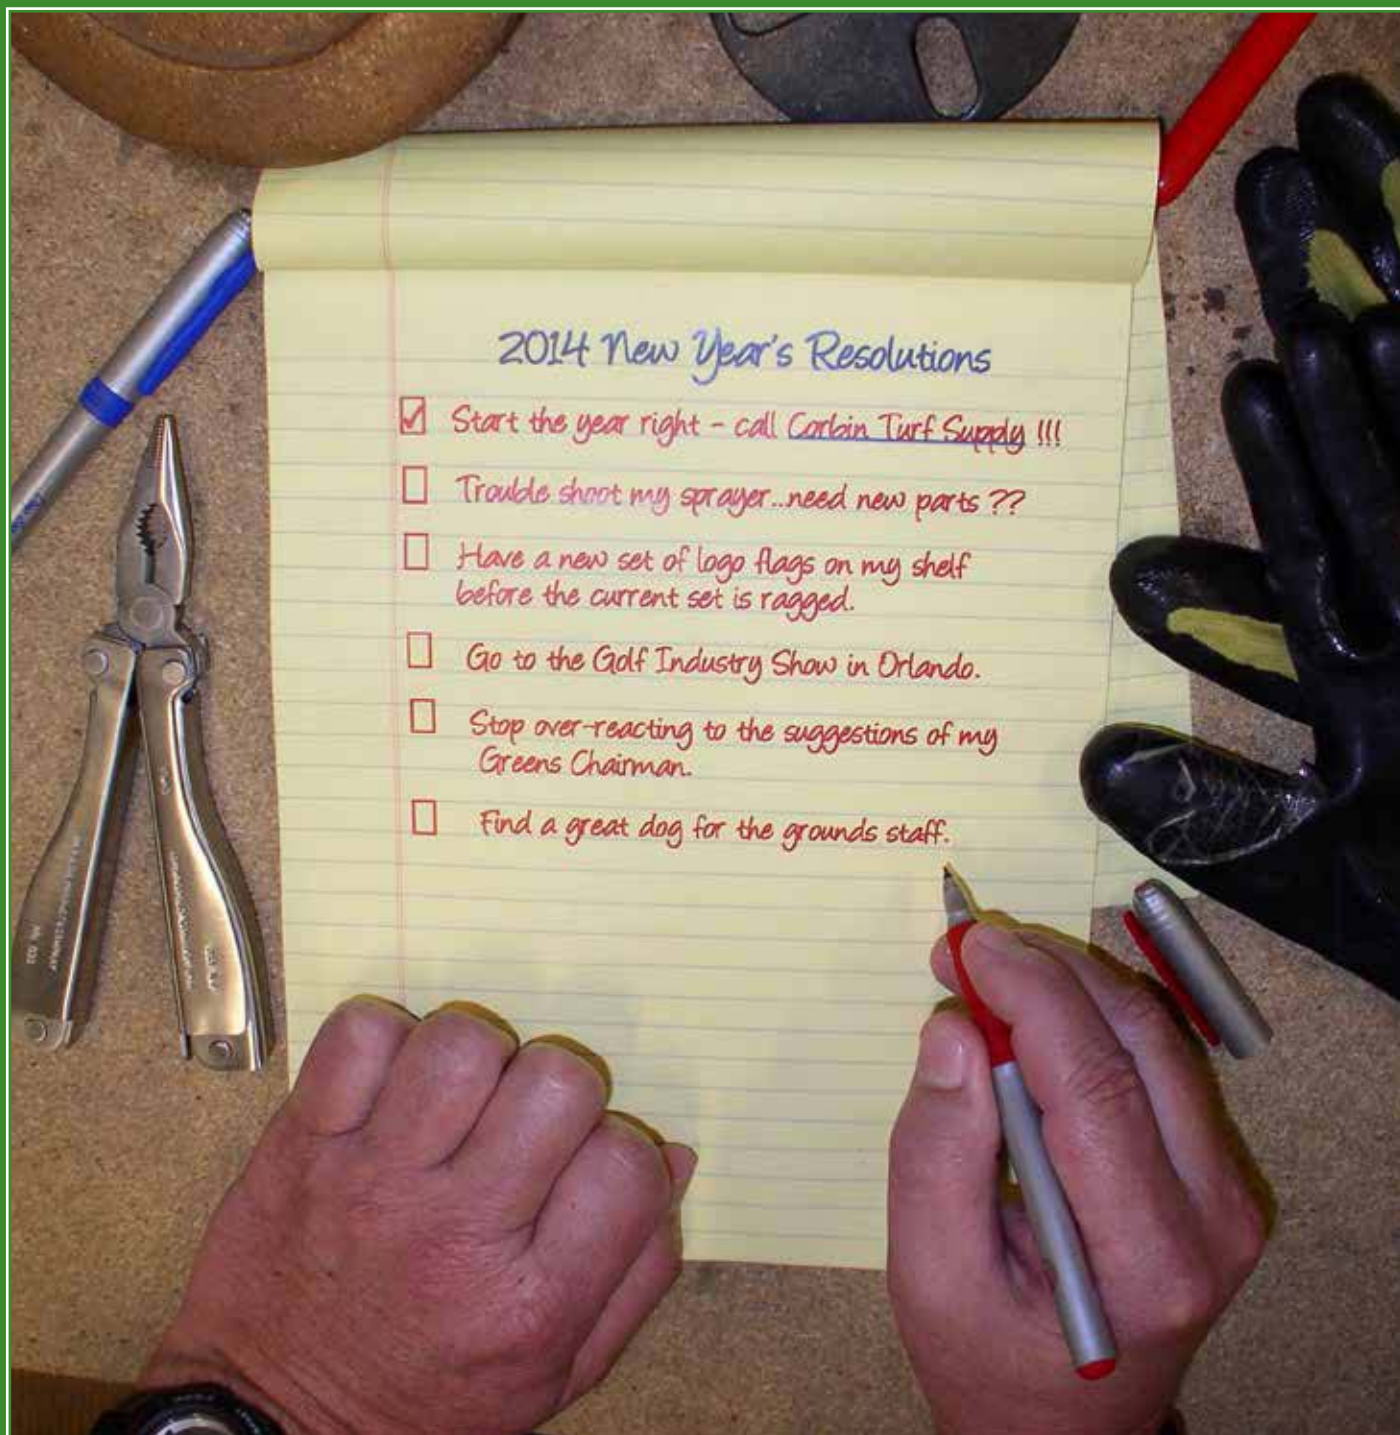 2014 New Year's Resolutions
Start the year right - call Corbin Turf Supply !!!
Trouble shoot my sprayer...need new parts ??
Have a new set of logo flags on my shelf
before the current set is ragged.
Go to the Golf Industry Show in Orlando.
Stop over-reacting to the suggestions of my
Greens Chairman.
Find a great dog for the grounds staff.